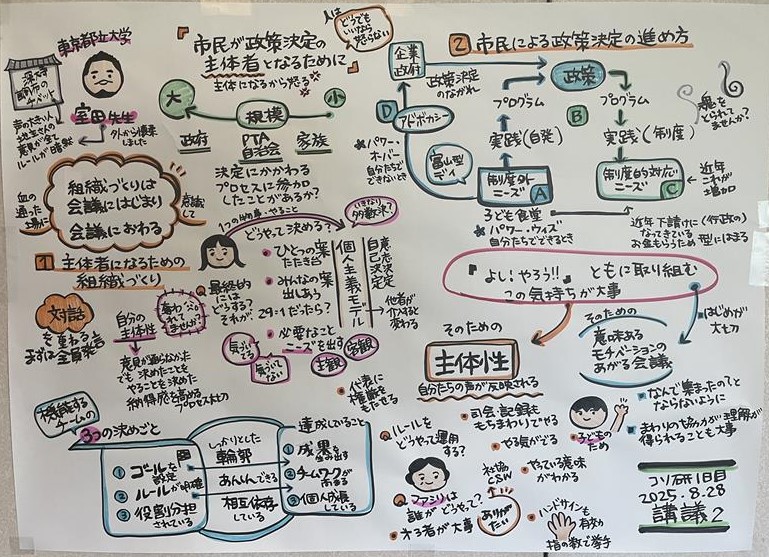 東京都立大学
室田先生
外から傍聴しました
声の大きい人
地主さんの
意見が全て
ルールが曖昧
組織づくりは
会議にはじまり
会議におわる
血の通った土壌に
意識して
『市民が政策決定の
主体者となるために』
主体になるから怒る
人は
どうでも
いいなら
怒らない
大
規模
小
政府
PTA
自治会
家族
決定にかかわる
プロセスに参加
したことがあるか?
1 主体者になるための
組織づくり
対話
を重ねる
まずは全員発言
自分の
主体性
奪われ
ていませんか?
意見が通らなかった
でも決めたことを
やることを決めた
納得度を高める
プロセス大切
どうやって決める?
いきなり
多数決?
最終的
にはどうする?
それが、
ひとつの案
たたき台
みんなの案
出しあう
29:1だったら?
必要なこと
ニーズを出す
気づいてる
気づいてない
主観
客観
個人主義モデル
自己決定
意思決定
他者が
介入すると
変わる
代表に
権限を
もたせる
機能する
チームの
3つの決めごと
① ゴールを
設定
② ルールが明確
③ 役割分担
されている
しっかりとした
輪郭
あんしんできる
相互依存
している
達成していること
① 成果を
生み出す
② チームワークが
高まる
③ 個人成長
している
2 市民による政策決定の進め方
企業
政府
政策決定
のながれ
政策
D
アドボカシー
パワー・
オーバー
自分たちで
できないとき
富山型
デイ
プログラム
実践(自発)
制度外
ニーズ A
子ども食堂
パワー・ウィズ
自分たちでできるとき
B
プログラム
実践(制度)
制度的対応
ニーズ C
魂を
とられて
ませんか?
近年
これが
増加
近年下請けに(行政の)
なってきている
お金もらうため型にはまる
『よし!やろう!!』ともに取り組む
この気持ちが大事
そのための
主体性
自分たちの声が反映される
そのための
意味ある
モチベーションの
あがる会議
はじめが
大切
ルールを
どうやって運用
する?
司会・記録も
もちまわりでやる
やる気がでる
やっている意味
がわかる
子どもの
ため
なんで集まったの?と
ならないように
まわりの協力が理解が
得られることも大事
Q ファシリは
誰がどうやって?
オろ者が大事
社協
CSW
ありが
たい
ハンドサインも
有効
指の数で挙手
コソ研1日目
2025.8.28
講義2